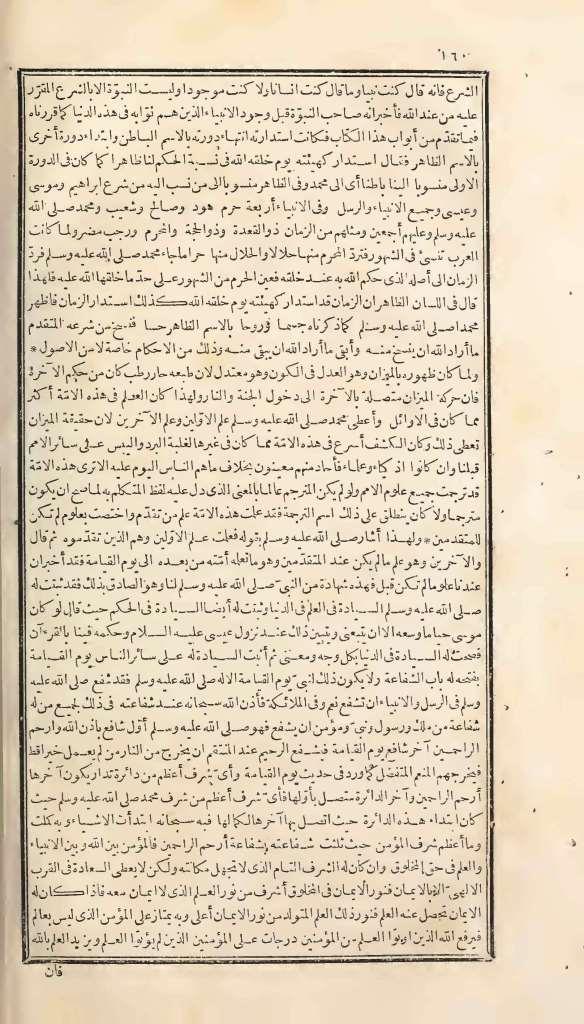 ١٦٠
الشرع فانه قال كنت نبيا وما قال كنت انسانا ولا كنت موجودا وليست النبوّة الا بالشرع المقرّر
عليه من عند الله فأخبر انه صاحب النبوّة قبل وجود الانبياء الذين هم نوّابه في هذه الدنيا كما قررناه
فيما تقدّم من أبواب هذا الكتاب فكانت استدارته انتهاء دورته بالاسم الباطن وابتداء دورة أخرى
بالاسم الظاهر فقال استدار كهيئته يوم خلقه الله في نسبة الحكم لنا ظاهرا كما كان في الدورة
الاولى منسوبا الينا باطنا أى الى محمد وفى الظاهر منسوبا الى من نسب اليه من شرع ابراهيم وموسى
وعيسى وجميع الانبياء والرسل وفى الانبياء أربعة حرم هود وصالح وشعيب ومحمد صلى الله
عليه وسلم وعليهم أجمعين ومثلهم من الزمان ذوالقعدة وذوالحجة والمحرم ورجب مضر ولما كانت
العرب تنسئ في الشهور فتردّ المحرم منها حلالا والحلال منها حراما جاء محمد صلى الله عليه وسلم فردّ
الزمان الى أصله الذى حكم الله به عند خلقه فعين الحرم من الشهور على حدّ ما خلقها الله عليه فلهذا
قال فى اللسان الظاهر ان الزمان قد استدار كهيئته يوم خلقه الله كذلك استدار الزمان فاظهر
محمد اصلى الله عليه وسلم كما ذكرناه جسما وروحا بالاسم الظاهر حسا فنسخ من شرعه المتقدم
ما أراد الله ان ينسخ منه وأبقى ما أراد الله ان يبقى منه وذلك من الاحكام خاصة لا من الاصول *
ولما كان ظهوره بالميزان وهو العدل فى الكون وهو معتدل لان طبعه حار رطب كان من حكم الآخرة
فان حركة الميزان متصلة بالآخرة الى دخول الجنة والنار ولهذا كان العلم فى هذه الامّة أكثر
مما كان فى الاوائل وأعطى محمد صلى الله عليه وسلم علم الاوّلين وعلم الآخرين لان حقيقة الميزان
تعطى ذلك وكان الكشف أسرع فى هذه الامّة مما كان فى غيرها لغلبة البرد واليبس على سائر الامم
قبلنا وان كانوا اذكياء وعلماء فآحاد منهم معينون بخلاف ما هم الناس اليوم عليه الا ترى هذه الامّة
قد ترجمت جميع علوم الامم ولو لم يكن المترجم عالما بالمعنى الذى دل عليه لفظ المتكلم به لما صح ان يكون
مترجما ولا كان ينطلق على ذلك اسم الترجمة فقد علمت هذه الامّة علم من تقدّم واختصت بعلوم لم تكن
للمتقدمين * ولهذا أشار صلى الله عليه وسلم بقوله فعلمت علم الاوّلين وهم الذين تقدّموه ثم قال
والآخرين وهو علم ما لم يكن عند المتقدّمين وهو ما تعلمه أمّته من بعده الى يوم القيامة فقد أخبر ان
عندنا علوما لم تكن قبل فهذه شهادة من النبىّ صلى الله عليه وسلم لنا وهو الصادق بذلك فقد ثبتت له
صلى الله عليه وسلم السيادة فى العلم فى الدنيا وثبتت له أيضا السيادة فى الحكم حيث قال لو كان
موسى حيا ما وسعه الا ان يتبعنى ويتبين ذلك عند نزول عيسى عليه السلام وحكمه فينا بالقرءآن
فصحت له السيادة فى الدنيا بكل وجه ومعنى ثم أثبت السيادة له على سائر الناس يوم القيامة
بفتحه له باب الشفاعة ولا يكون ذلك لنبىّ يوم القيامة الا له صلى الله عليه وسلم فقد شفع صلى الله عليه
وسلم فى الرسل والانبياء ان تشفع نعم وفى الملائكة فأذن الله سبحانه عند شفاعته فى ذلك لجميع من له
شفاعة من ملك ورسول ونبىّ ومؤمن ان يشفع فهو صلى الله عليه وسلم أوّل شافع باذن الله وارحم
الراحمين آخر شافع يوم القيامة فشفع الرحيم عند المنتقم ان يخرج من النار من لم يعمل خيرا قط
فيخرجهم المنعم المتفضل كما ورد فى حديث يوم القيامة وأىّ شرف أعظم من دائرة تدار يكون آخرها
أرحم الراحمين وآخر الدائرة متصل بأوّلها فأىّ شرف أعظم من شرف محمد صلى الله عليه وسلم حيث
كان ابتداء هذه الدائرة حيث اتصل بها آخرها لكمالها فبه سبحانه ابتدأت الاشياء وبه كملت
وما أعظم شرف المؤمن حيث ثلثت شفاعته بشفاعة أرحم الراحمين فالمؤمن بين الله وبين الانبياء
والعلم فى حق المخلوق وان كان له الشرف التام الذى لا تجهل مكانته ولكن لا يعطى السعادة فى القرب
الالهىّ الا بالايمان فنور الايمان فى المخلوق أشرف من نور العلم الذى لا ايمان معه فاذا كان له
الايمان يحصل عنه العلم فنور ذلك العلم المتولد من نور الايمان أعلى وبه يمتاز على المؤمن الذى ليس بعالم
فيرفع الله الذين اوتوا العلم من المؤمنين درجات على المؤمنين الذين لم يؤتوا العلم ويزيد العلم بالله
فان